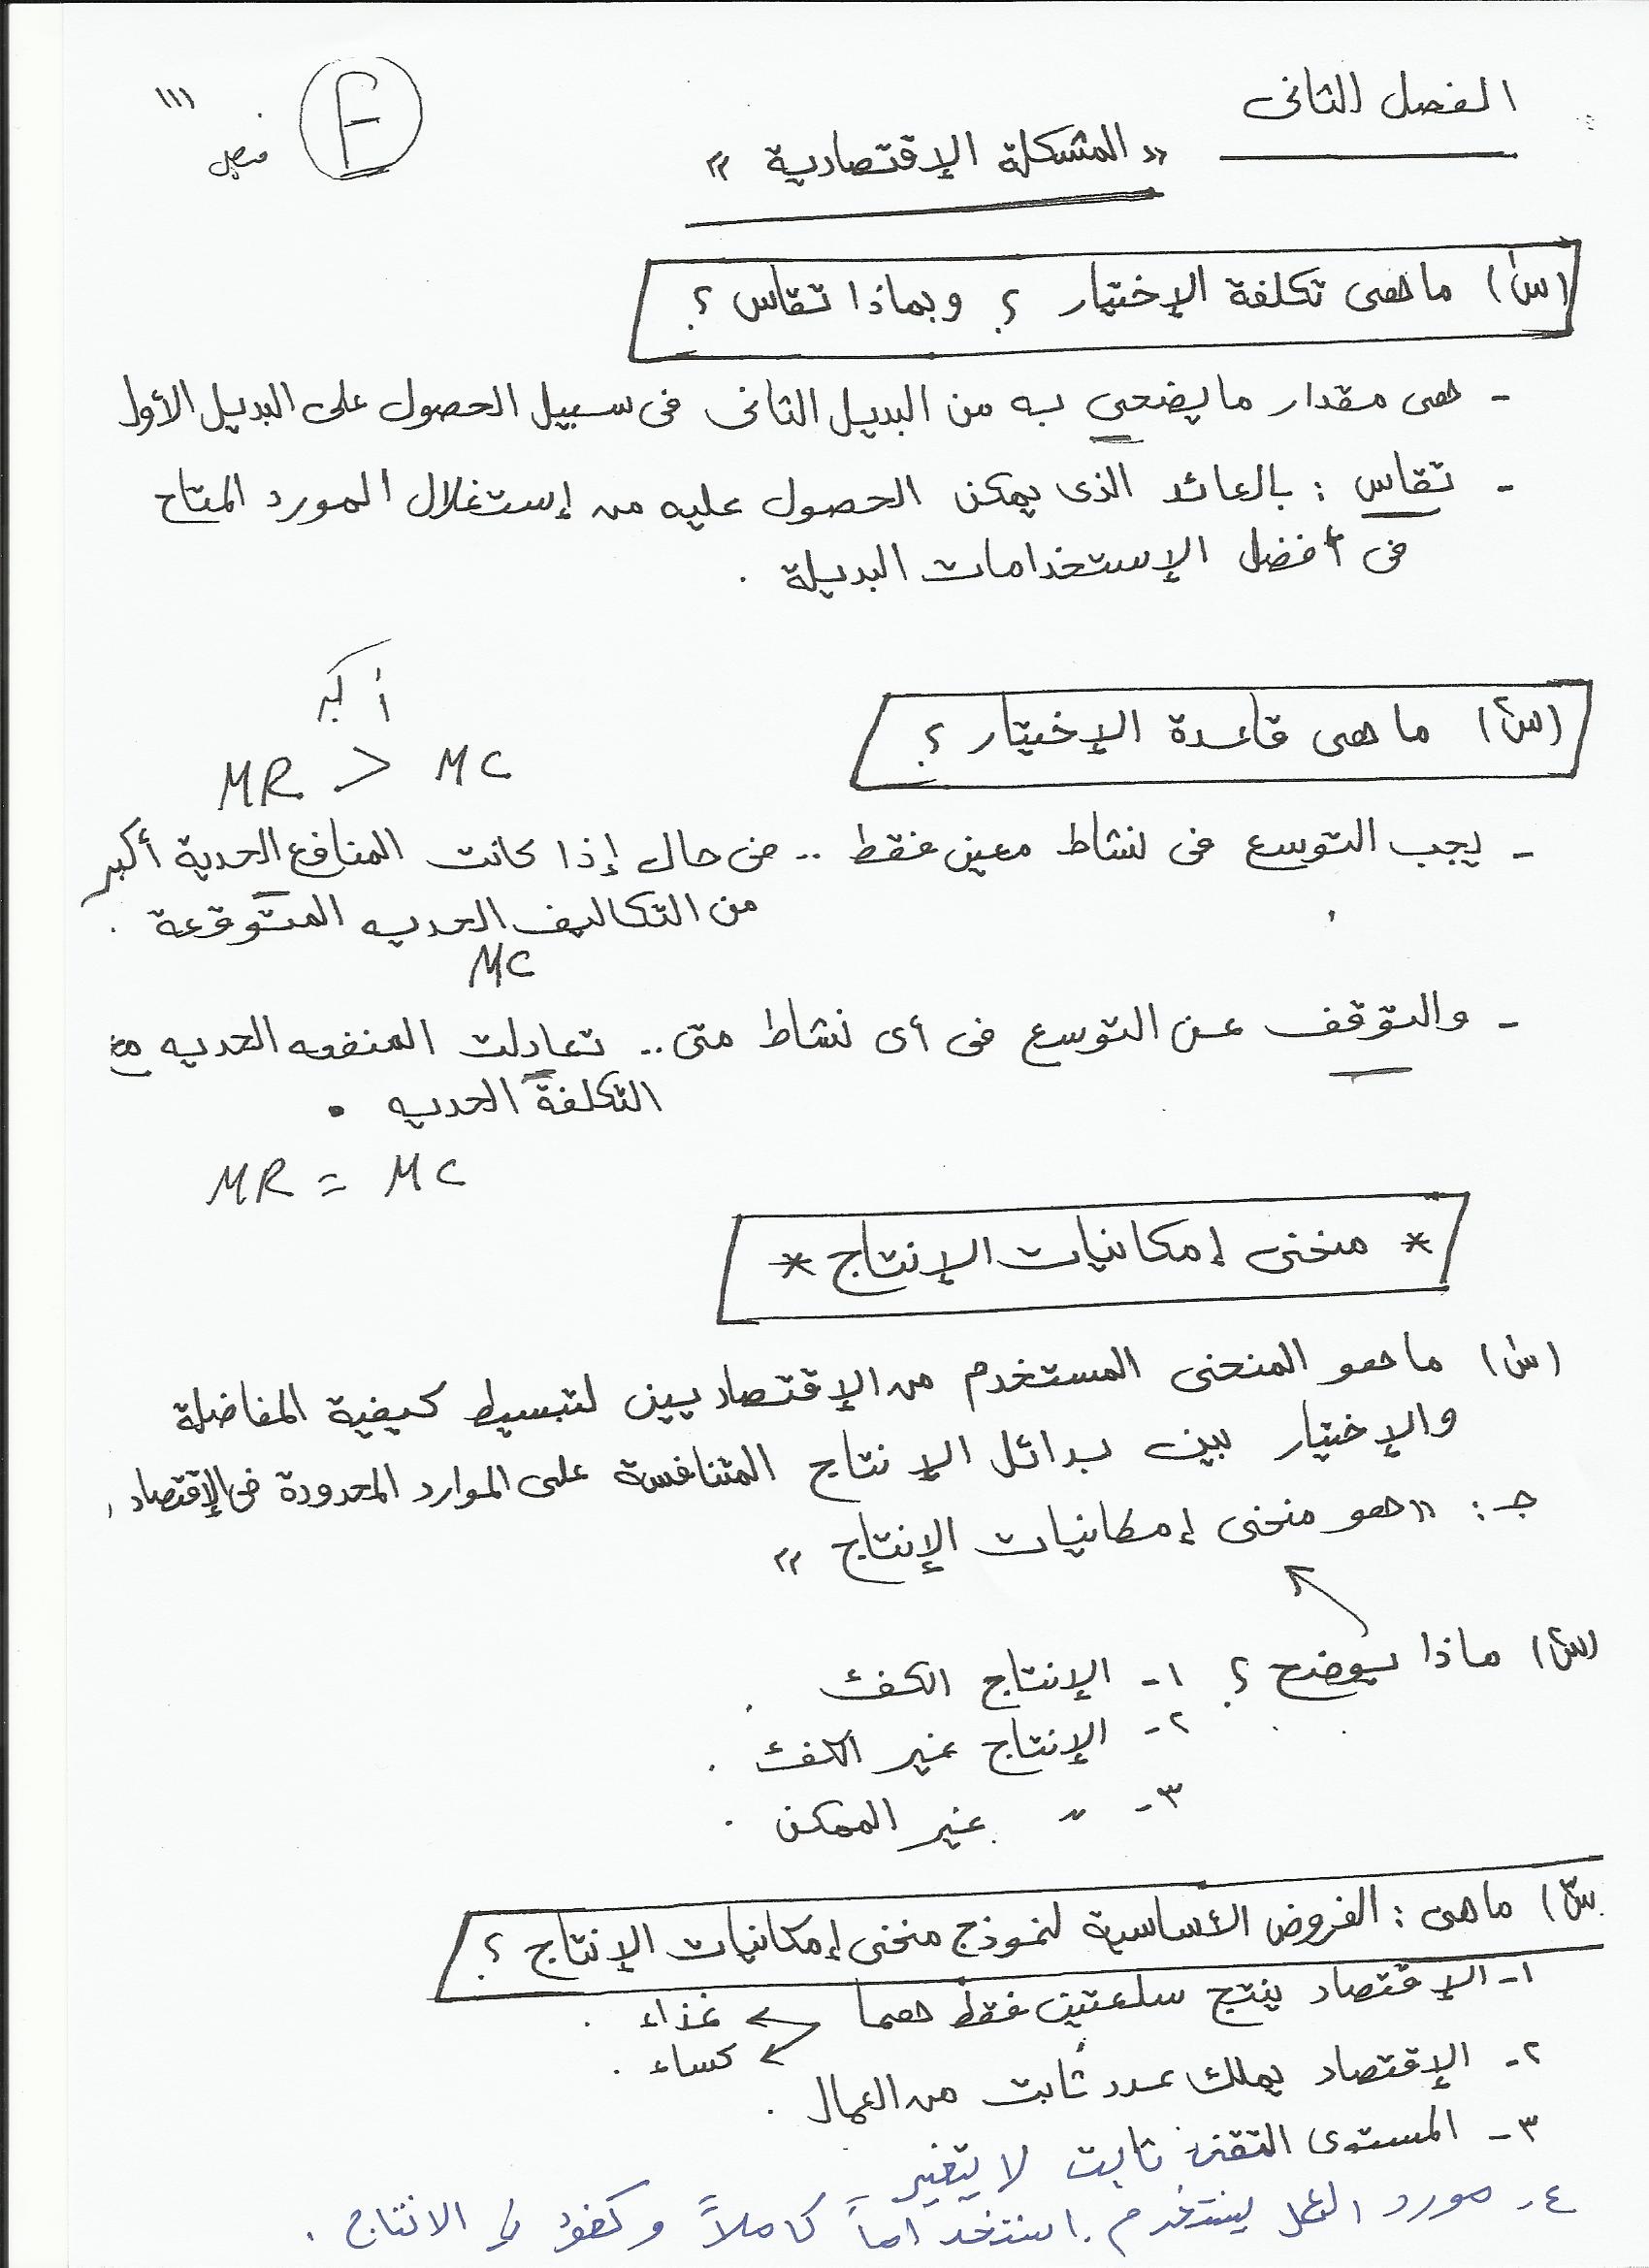 الفصل الثانى
«المشكلة الإقتصادية»
F
فيصل
١١١
(س١) ما هى تكلفة الإختيار ؟ وبماذا تقاس ؟
- هى مقدار ما يضحي به من البديل الثانى فى سبيل الحصول على البديل الأول
- تقاس : بالعائد الذى يمكن الحصول عليه من إستغلال المورد المتاح
فى أفضل الإستخدامات البديلة .
(س٢) ما هى قاعدة الإختيار ؟
أكبر
MR > MC
- يجب التوسع فى نشاط معين فقط .. فى حال إذا كانت المنافع الحدية أكبر
من التكاليف الحديه المتوقعة .
MC
- والتوقف عن التوسع فى أى نشاط متى .. تعادلت المنفعه الحديه مع
التكلفة الحديه .
MR = MC
* منحنى إمكانيات الإنتاج *
(س١) ما هو المنحنى المستخدم من الإقتصاديين لتبسيط كيفية المفاضلة
والإختيار بين بدائل الإنتاج المتنافسة على الموارد المحدودة فى الإقتصاد .
جـ : «هو منحنى إمكانيات الإنتاج»
(س٢) ماذا يوضح ؟ ١- الإنتاج الكفء .
٢- الإنتاج غير الكفء .
٣- " غير الممكن .
س٣) ما هى : الفروض الأساسية لنموذج منحنى إمكانيات الإنتاج ؟
١- الإقتصاد ينتج سلعتين فقط هما غذاء .
كساء .
٢- الإقتصاد يملك عدد ثابت من العمال .
٣- المستوى التقنى ثابت لا يتغير
٤- مورد العمل يستخدم استخداماً كاملاً وكفؤ في الانتاج .